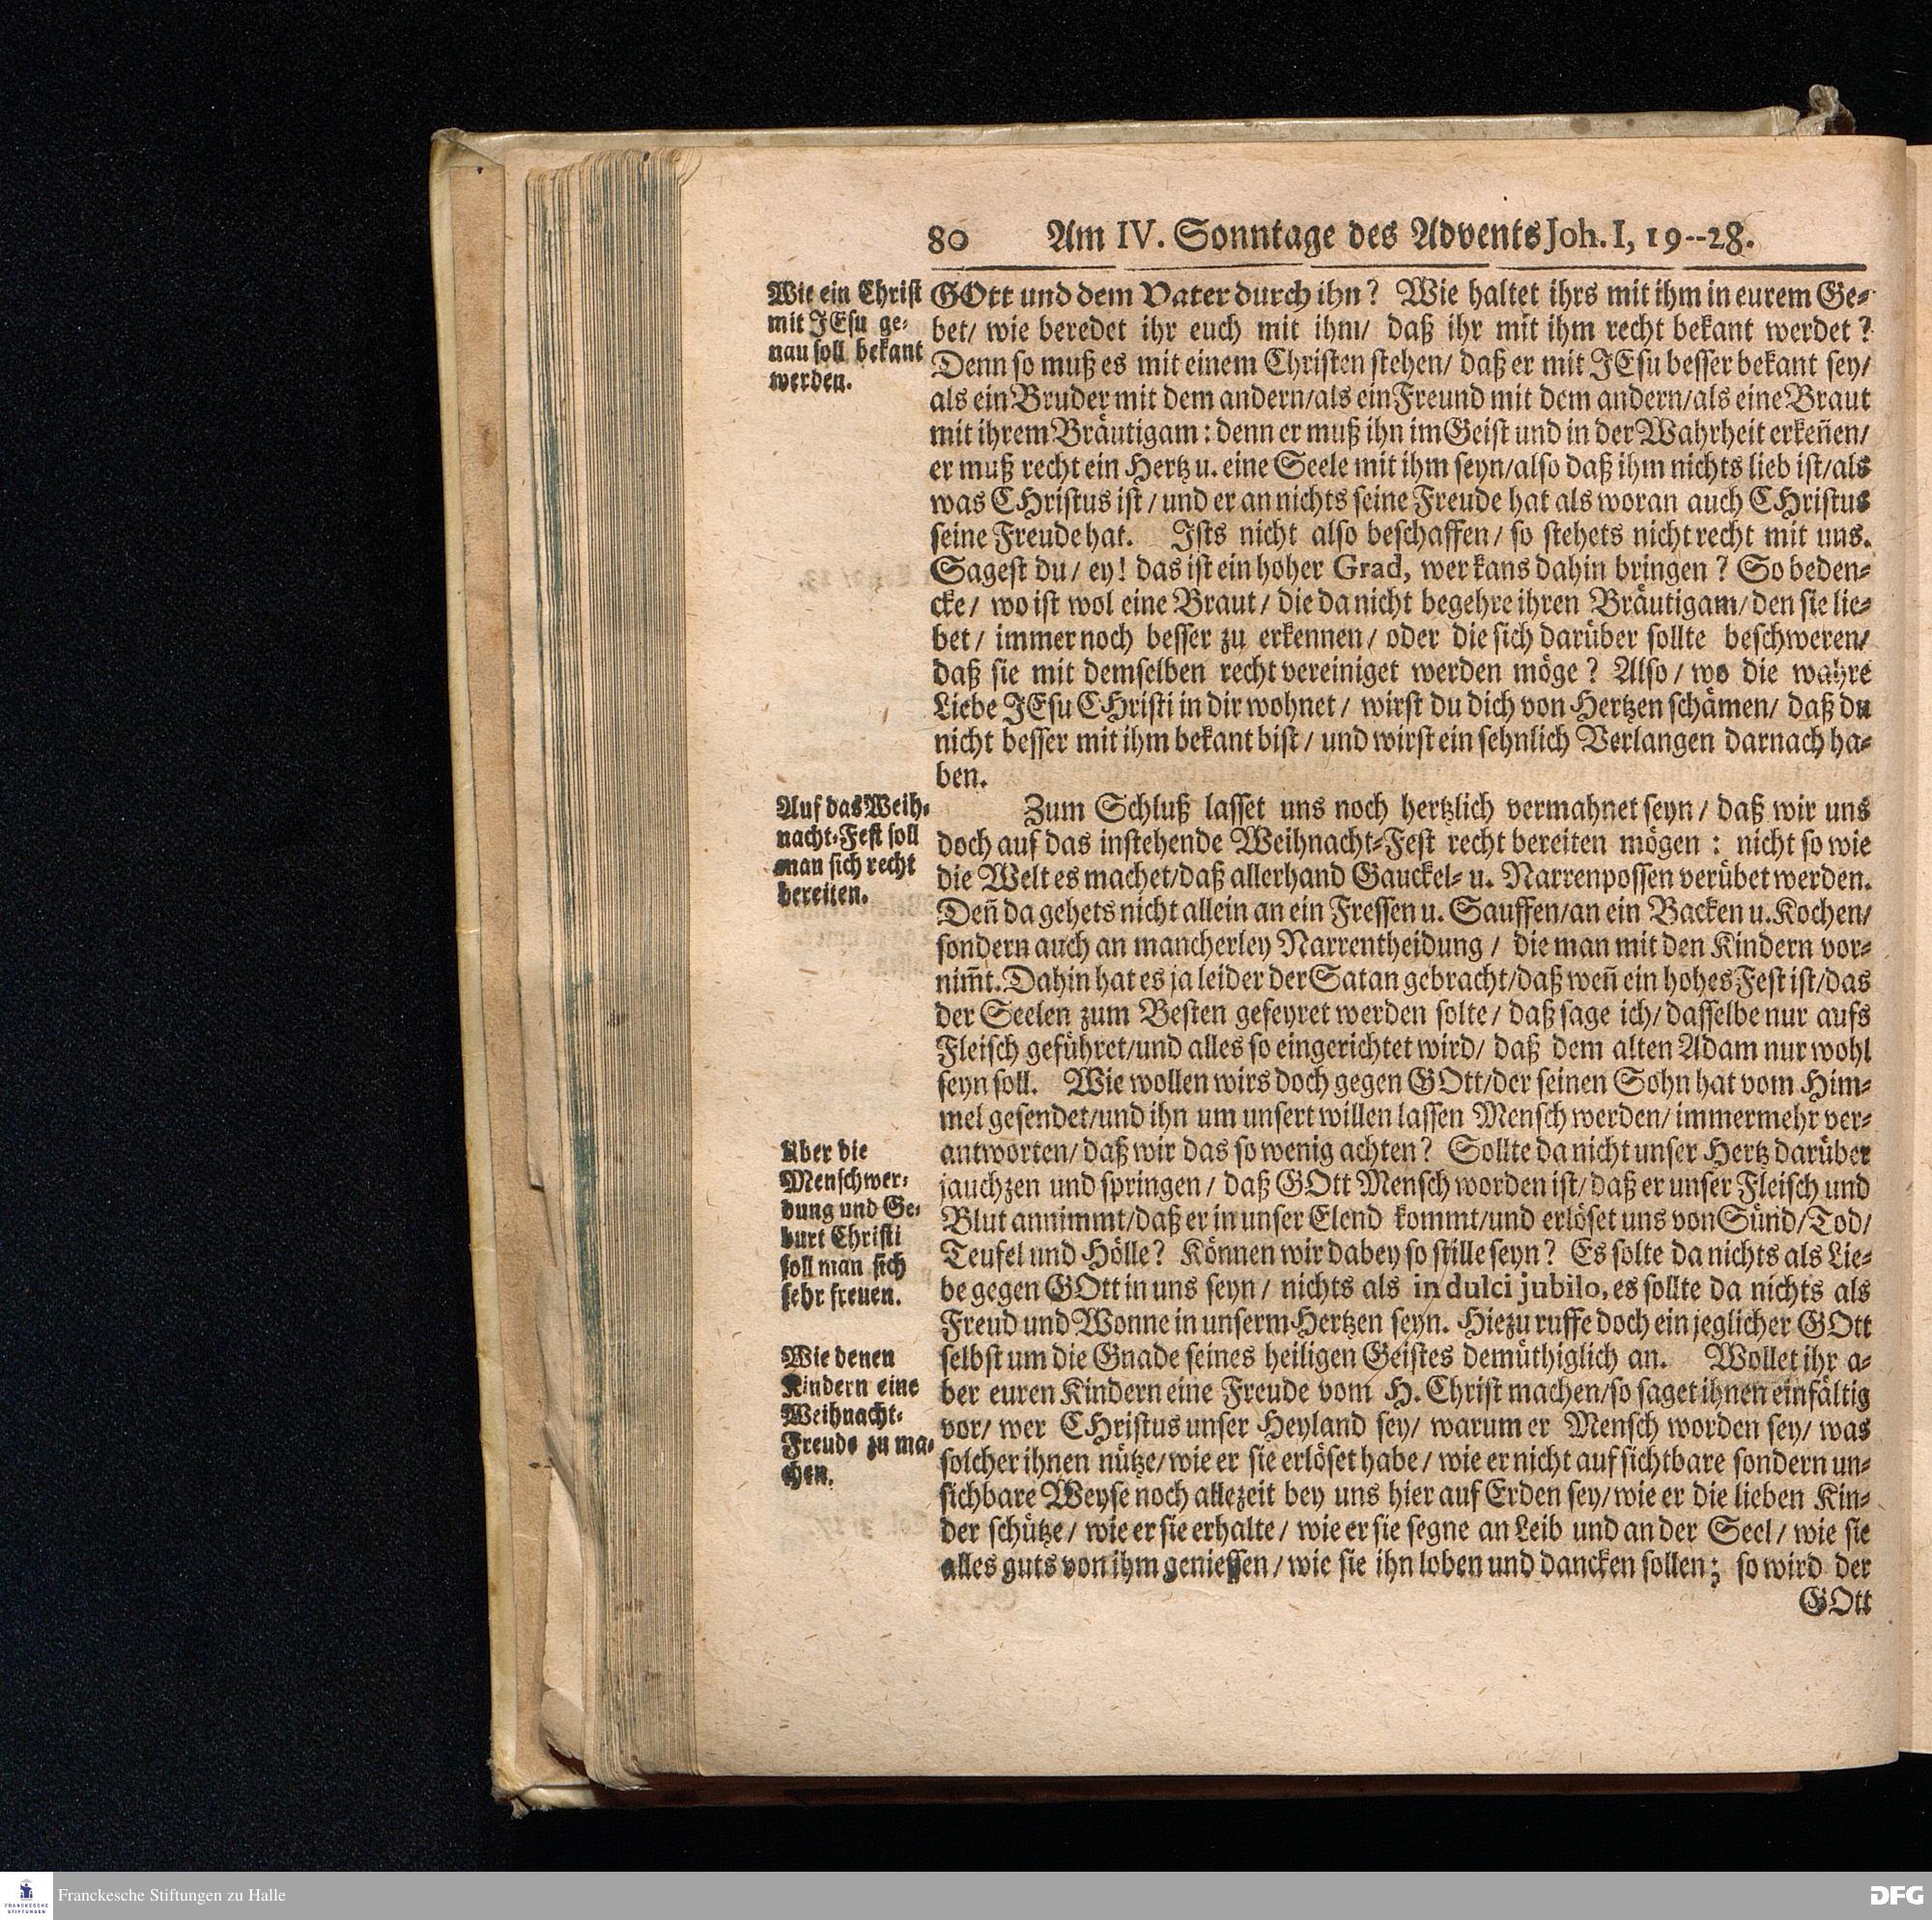 80 Am IV. Sonntage des Advents Joh. I, 19--28.
Wie ein Christ
mit JEsu ge-
nau soll bekant
werden.
GOtt und dem Vater durch ihn? Wie haltet ihrs mit ihm in eurem Ge-
bet/ wie beredet ihr euch mit ihm/ daß ihr mit ihm recht bekant werdet?
Denn so muß es mit einem Christen stehen/ daß er mit JEsu besser bekant sey/
als ein Bruder mit dem andern/als ein Freund mit dem andern/als eine Braut
mit ihrem Bräutigam: denn er muß ihn im Geist und in der Wahrheit erkeñen/
er muß recht ein Hertz u. eine Seele mit ihm seyn/also daß ihm nichts lieb ist/als
was CHristus ist/ und er an nichts seine Freude hat als woran auch CHristus
seine Freude hat. Ists nicht also beschaffen/ so stehets nicht recht mit uns.
Sagest du/ ey! das ist ein hoher Grad, wer kans dahin bringen? So beden-
cke/ wo ist wol eine Braut/ die da nicht begehre ihren Bräutigam/den sie lie-
bet/ immer noch besser zu erkennen/ oder die sich darüber sollte beschweren/
daß sie mit demselben recht vereiniget werden möge? Also/ wo die wahre
Liebe JEsu CHristi in dir wohnet/ wirst du dich von Hertzen schämen/ daß du
nicht besser mit ihm bekant bist/ und wirst ein sehnlich Verlangen darnach ha-
ben.
Auf das Weih-
nacht-Fest soll
man sich recht
bereiten.
Zum Schluß lasset uns noch hertzlich vermahnet seyn/ daß wir uns
doch auf das instehende Weihnacht-Fest recht bereiten mögen: nicht so wie
die Welt es machet/daß allerhand Gauckel- u. Narrenpossen verübet werden.
Deñ da gehets nicht allein an ein Fressen u. Sauffen/an ein Backen u. Kochen/
sondern auch an mancherley Narrentheidung/ die man mit den Kindern vor-
nim̃t. Dahin hat es ja leider der Satan gebracht/daß weñ ein hohes Fest ist/das
der Seelen zum Besten gefeyret werden solte/ daß sage ich/ dasselbe nur aufs
Fleisch geführet/und alles so eingerichtet wird/ daß dem alten Adam nur wohl
seyn soll. Wie wollen wirs doch gegen GOtt/der seinen Sohn hat vom Him-
mel gesendet/und ihn um unsert willen lassen Mensch werden/ immermehr ver-
antworten/ daß wir das so wenig achten? Sollte da nicht unser Hertz darüber
jauchzen und springen/ daß GOtt Mensch worden ist/ daß er unser Fleisch und
Blut annimmt/daß er in unser Elend kommt/und erlöset uns von Sünd/Tod/
Teufel und Hölle? Können wir dabey so stille seyn? Es solte da nichts als Lie-
be gegen GOtt in uns seyn/ nichts als in dulci jubilo, es sollte da nichts als
Freud und Wonne in unserm Hertzen seyn. Hiezu ruffe doch ein jeglicher GOtt
selbst um die Gnade seines heiligen Geistes demüthiglich an. Wollet ihr a-
ber euren Kindern eine Freude vom H. Christ machen/so saget ihnen einfältig
vor/ wer CHristus unser Heyland sey/ warum er Mensch worden sey/ was
solcher ihnen nütze/wie er sie erlöset habe/ wie er nicht auf sichtbare sondern un-
sichbare Weyse noch allezeit bey uns hier auf Erden sey/wie er die lieben Kin-
der schütze/ wie er sie erhalte/ wie er sie segne an Leib und an der Seel/ wie sie
alles guts von ihm geniessen/ wie sie ihn loben und dancken sollen; so wird der
Uber die
Menschwer-
dung und Ge-
burt Christi
soll man sich
sehr freuen.
Wie denen
Kindern eine
Weihnacht-
Freude zu ma-
chen.
GOtt
FRANCKESCHE
STIFTUNGEN
Franckesche Stiftungen zu Halle
DFG